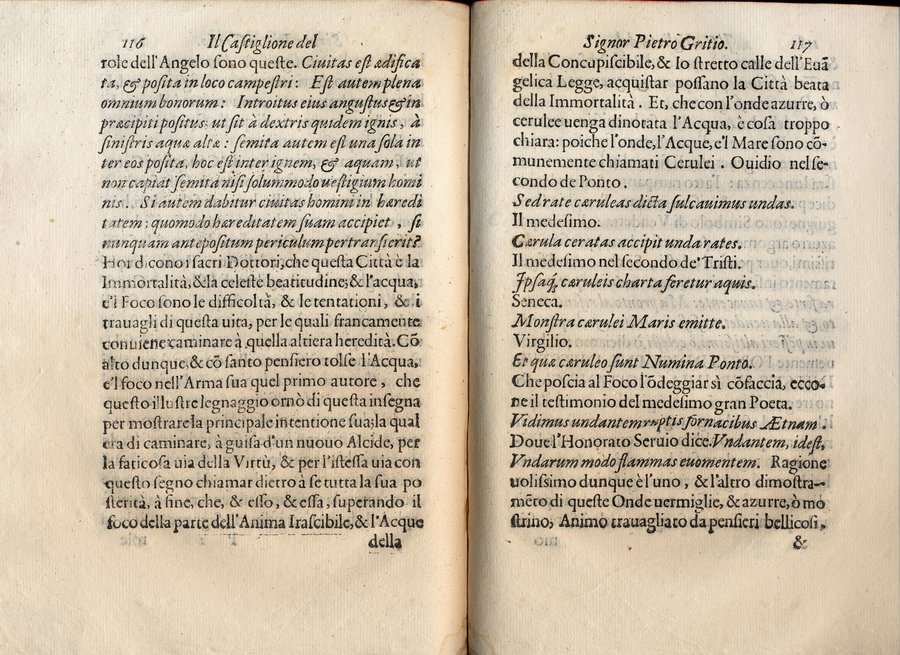 116 Il Caſtiglione del
role dell'Angelo ſono queſte. Ciuitas eſt ædifica
ta, & poſita in loco campeſtri: Eſt autem plena
omnium bonorum: Introitus eius anguſtus & in
præcipiti poſitus, ut ſit à dextris quidem ignis, à
ſiniſtris aquæ altæ: ſemita autem eſt una ſola in
ter eos poſita, hoc eſt inter ignem, & aquam, ut
non capiat ſemita niſi ſolummodo ueſtigium homi
nis. Si autem dabitur ciuitas homini in hæredi
tatem; quomodo hæreditatem ſuam accipiet, ſi
nunquam antepoſitum periculum pertranſierit?
Hor dicono i ſacri Dottori, che queſta Città è la
Immortalità, & la celeſte beatitudine; & l'acqua,
e'l Foco ſono le difficoltà, & le tentationi, & i
trauagli di queſta uita, per le quali francamente
conuiene caminare à quella altiera heredità. Cō
alto dunque, & cō ſanto penſiero tolſe l'Acqua,
e'l foco nell'Arma ſua quel primo autore, che
queſto illuſtre legnaggio ornò di queſta inſegna
per moſtrare la principale intentione ſua; la qual
era di caminare, à guiſa d'un nuouo Alcide, per
la faticoſa uia della Virtù, & per l'iſteſſa uia con
queſto ſegno chiamar dietro à ſe tutta la ſua po
ſterità, à fine, che, & eſſo, & eſſa, ſuperando il
foco della parte dell'Anima Iraſcibile, & l'Acque
della
Signor Pietro Gritio. 117
della Concupiſcibile, & lo ſtretto calle dell'Euā
gelica Legge, acquiſtar poſſano la Città beata
della Immortalità. Et, che con l'onde azurre, ò
cerulee uenga dinotata l'Acqua, è coſa troppo
chiara: poiche l'onde, l'Acque, e'l Mare ſono cō-
munemente chiamati Cerulei. Ouidio nel ſe-
condo de Ponto.
Sed rate cæruleas dicta ſulcauimus undas.
Il medeſimo.
Cærula ceratas accipit unda rates.
Il medeſimo nel ſecondo de' Triſti.
Ipſaq́; cæruleis charta feretur aquis.
Seneca.
Monſtra cærulei Maris emitte.
Virgilio.
Et quæ cæruleo ſunt Numina Ponto.
Che poſcia al Foco l'ōdeggiar sì cōfaccia, ecco-
ne il teſtimonio del medeſimo gran Poeta.
Vidimus undantem ruptis fornacibus Ætnam.
Doue l'Honorato Seruio dice. Vndantem, ideſt,
Vndarum modo flammas euomentem. Ragione
uoliſſimo dunque è l'uno, & l'altro dimoſtra-
mēto di queſte Onde uermiglie, & azurre, ò mo
ſtrino, Animo trauagliato da penſieri bellicoſi,
&